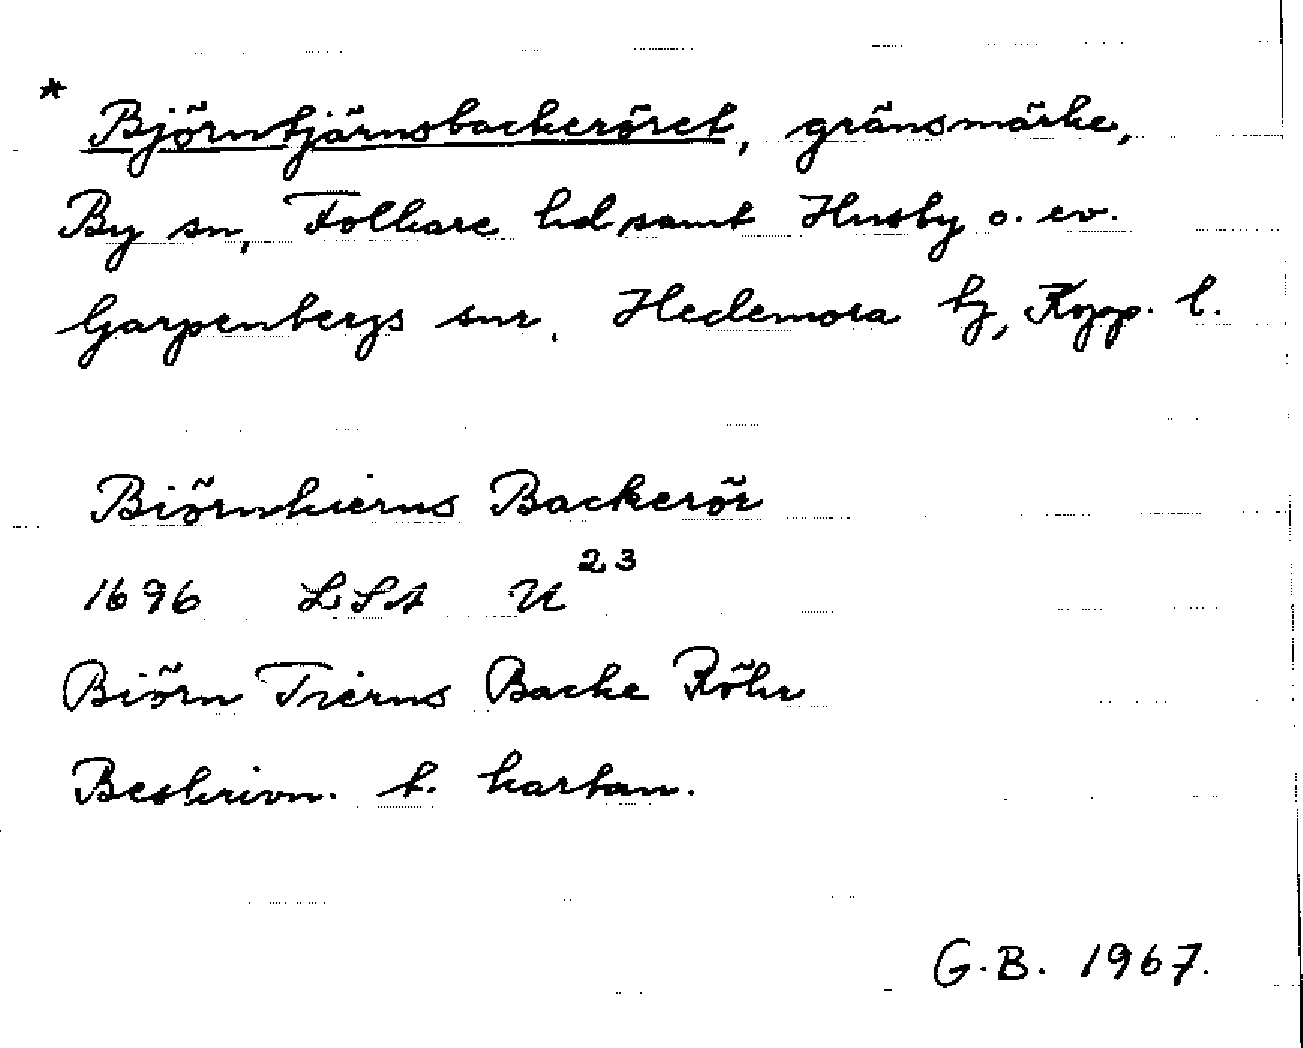 * Björntjärnsbackeröret, gränsmärke,
By sn, Folkare hd samt Husby o. ev.
Garpenbergs snr, Hedemora tg, Kopp. l.
Biörnkierns Backerör
1696 LSA U 23
Biörn Tierns Backe Röhr
Beskrivn. t. kartan.
G.B. 1967.